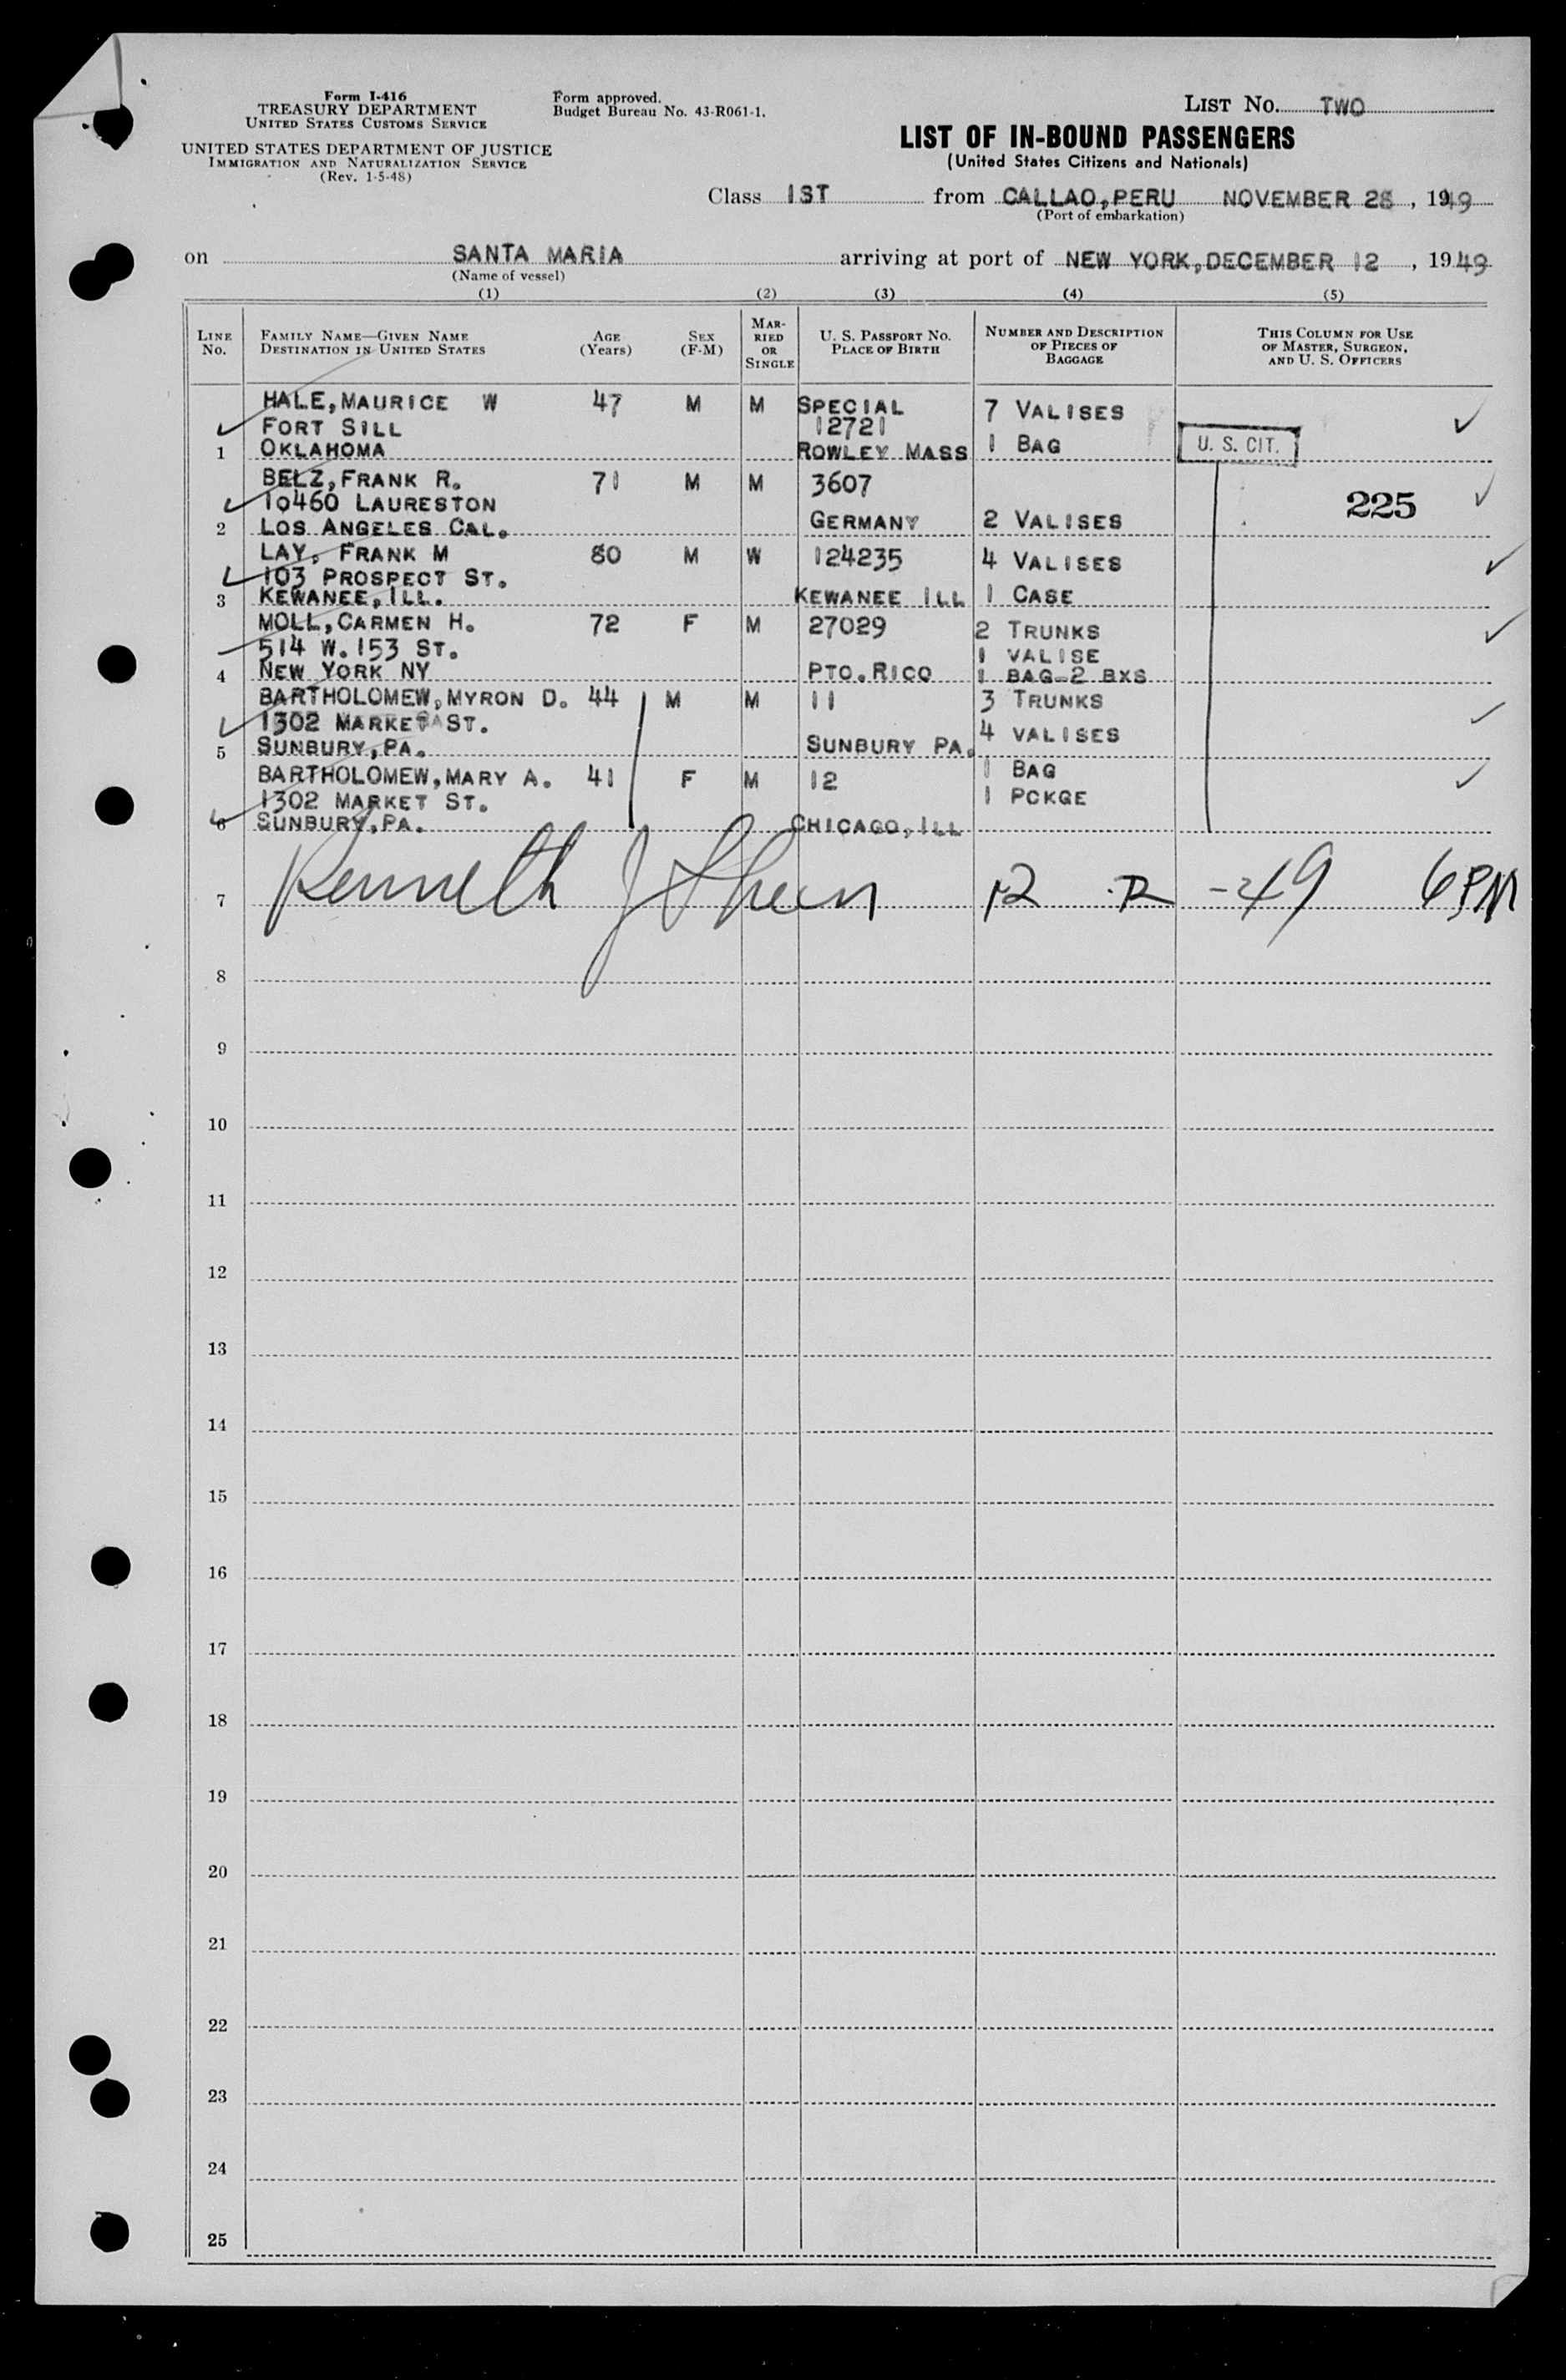 Form I-416
TREASURY DEPARTMENT
UNITED STATES CUSTOMS SERVICE
UNITED STATES DEPARTMENT OF JUSTICE
IMMIGRATION AND NATURALIZATION SERVICE
(Rev. 1-5-48)
Form approved.
Budget Bureau No. 43-R061-1.
LIST NO. TWO
LIST OF IN-BOUND PASSENGERS
(United States Citizens and Nationals)
Class 1ST from CALLAO, PERU NOVEMBER 28, 1949
(Port of embarkation)
on SANTA MARIA arriving at port of NEW YORK, DECEMBER 12, 1949
(Name of vessel)
(1) (2) (3) (4) (5)
LINE NO.
FAMILY NAME—GIVEN NAME
DESTINATION IN UNITED STATES
AGE (Years)
SEX (F-M)
MARRIED OR SINGLE
U. S. PASSPORT NO.
PLACE OF BIRTH
NUMBER AND DESCRIPTION OF PIECES OF BAGGAGE
THIS COLUMN FOR USE OF MASTER, SURGEON, AND U. S. OFFICERS
HALE, MAURICE W 47 M M SPECIAL 7 VALISES
FORT SILL 12721
1 OKLAHOMA ROWLEY MASS 1 BAG U. S. CIT.
BELZ, FRANK R. 71 M M 3607
10460 LAURESTON 225
2 LOS ANGELES CAL. GERMANY 2 VALISES
LAY, FRANK M 80 M W 124235 4 VALISES
103 PROSPECT ST.
3 KEWANEE, ILL. KEWANEE ILL 1 CASE
MOLL, CARMEN H. 72 F M 27029 2 TRUNKS
514 W. 153 ST. 1 VALISE
4 NEW YORK NY PTO. RICO 1 BAG-2 BXS
BARTHOLOMEW, MYRON D. 44 M M 11 3 TRUNKS
1302 MARKET ST. 4 VALISES
5 SUNBURY, PA. SUNBURY PA.
BARTHOLOMEW, MARY A. 41 F M 12 1 BAG
1302 MARKET ST. 1 PCKGE
6 SUNBURY, PA. CHICAGO, ILL
7 Kenneth J 12 -12 -49 6 PM
8
9
10
11
12
13
14
15
16
17
18
19
20
21
22
23
24
25